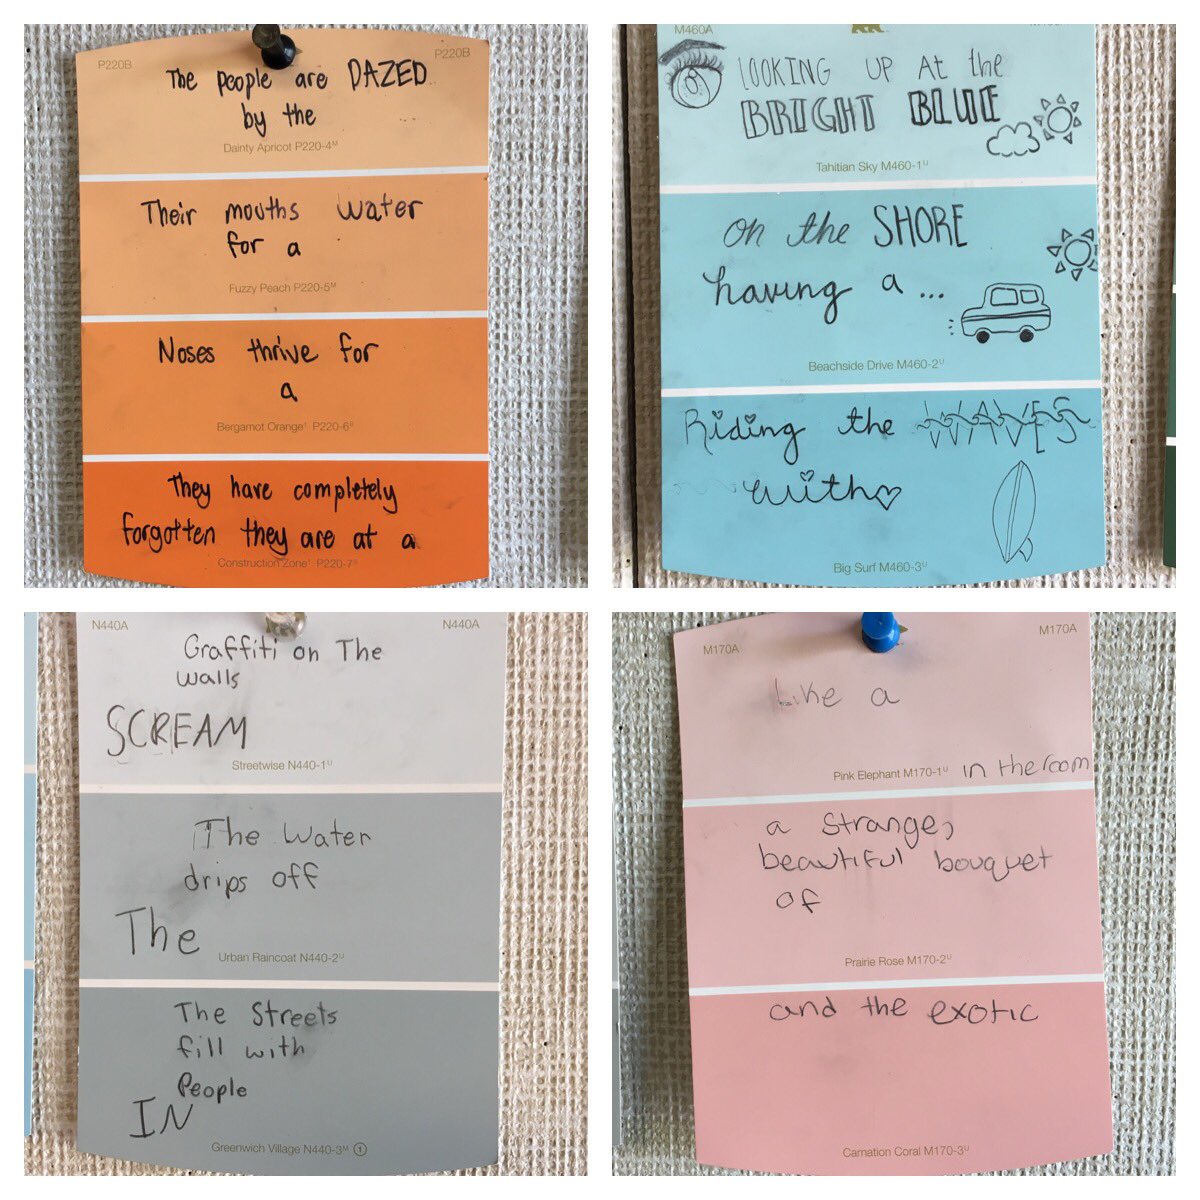 P220B
P220B
The people are DAZED
by the
Dainty Apricot P220-4M
Their mouths water
for a
Fuzzy Peach P220-5M
Noses thrive for
a
Bergamot Orange P220-6
They have completely
forgotten they are at a
Construction Zone P220-7
M460A
LOOKING UP At the
BRIGHT BLUE
Tahitian Sky M460-1U
on the SHORE
having a ...
Beachside Drive M460-2U
Riding the WAVES
with
Big Surf M460-3U
N440A
N440A
Graffiti on The
walls
SCREAM
Streetwise N440-1U
The water
drips off
The
Urban Raincoat N440-2U
The Streets
fill with
People
IN
Greenwich Village N440-3M 1
M170A
M170A
Like a
Pink Elephant M170-1U in the room
a strange,
beautiful bouquet
of
Prairie Rose M170-2U
and the exotic
Carnation Coral M170-3U